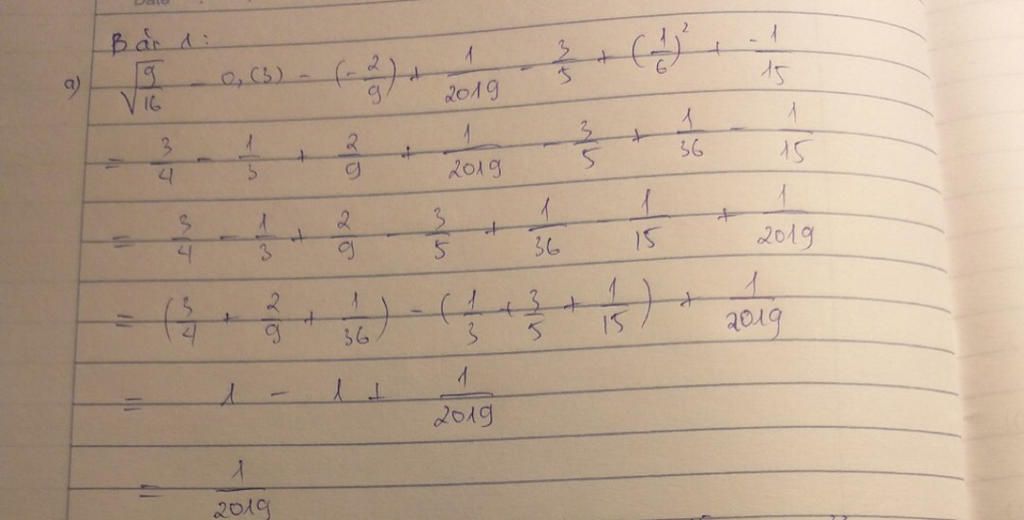 Bài 1:
a) √(9/16) - 0,(3) - (-2/9) + 1/2019 - 3/5 + (1/6)² + -1/15
= 3/4 - 1/3 + 2/9 + 1/2019 - 3/5 + 1/36 - 1/15
= 3/4 - 1/3 + 2/9 - 3/5 + 1/36 - 1/15 + 1/2019
= (3/4 + 2/9 + 1/36) - (1/3 + 3/5 + 1/15) + 1/2019
= 1 - 1 + 1/2019
= 1/2019